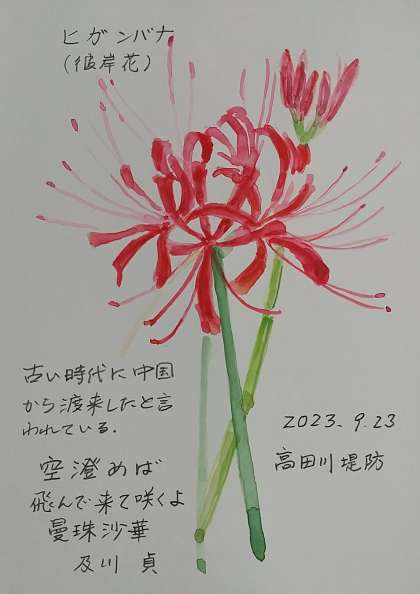 ヒガンバナ
(彼岸花)
古い時代に中国
から渡来したと言
われている.
2023.9.23
高田川堤防
空澄めば
飛んで来て咲くよ
曼珠沙華
及川 貞